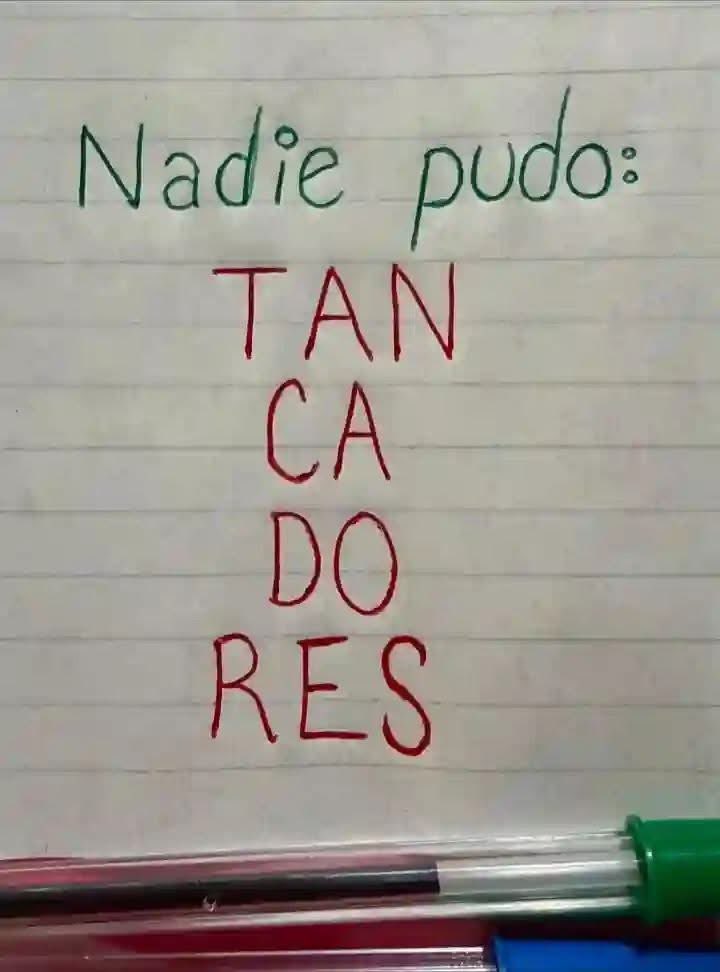 Nadie pudo:
TAN
CA
DO
RES